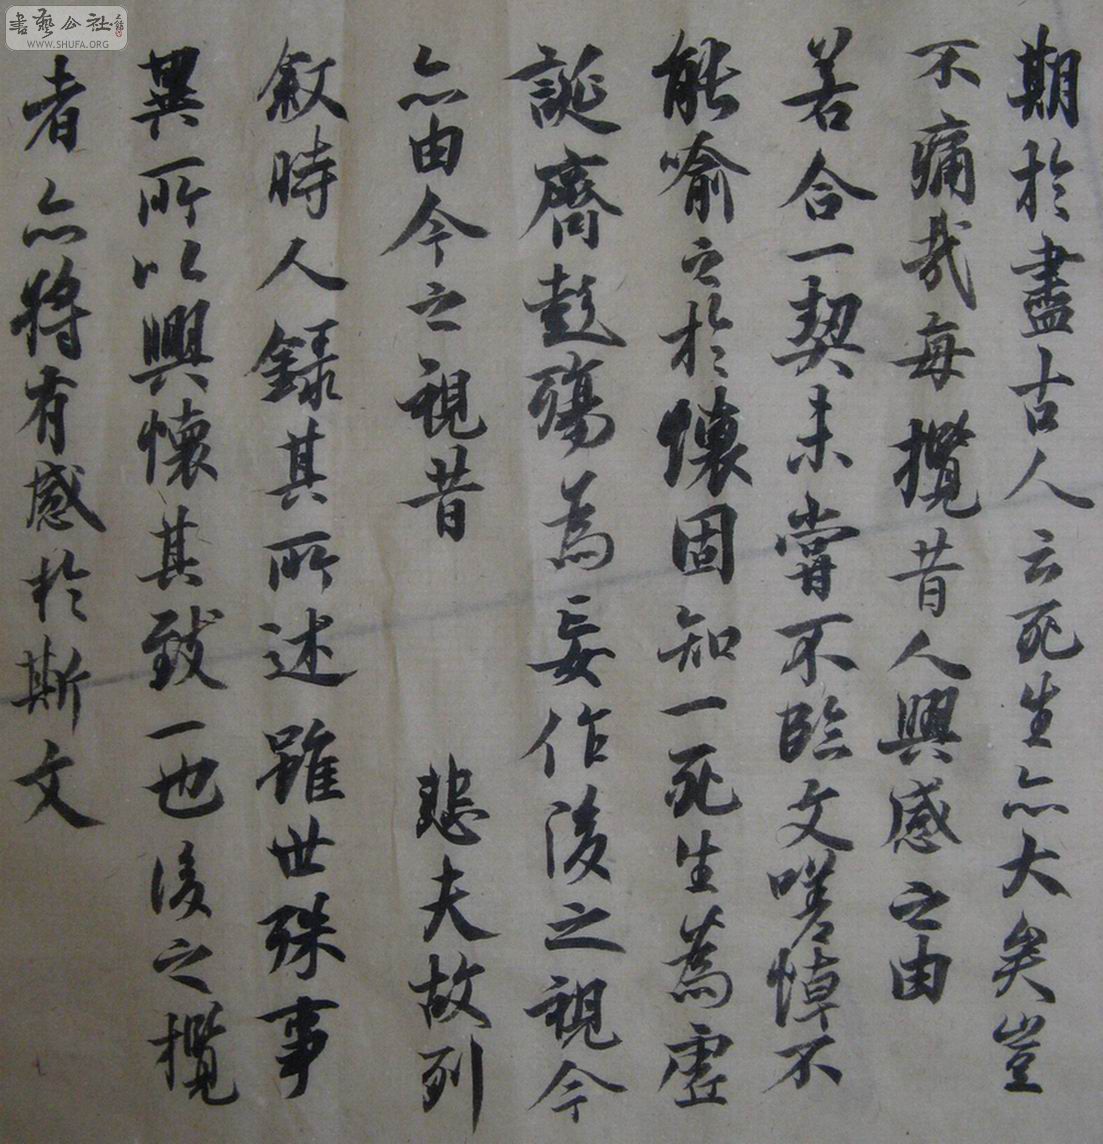 期於盡古人云死生亦大矣豈
不痛哉每攬昔人興感之由
若合一契未嘗不臨文嗟悼不
能喻之於懷固知一死生為虛
誕齊彭殤為妄作後之視今
亦由今之視昔 悲夫故列
敘時人錄其所述雖世殊事
異所以興懷其致一也後之攬
者亦將有感於斯文
書藝公社
WWW.SHUFA.ORG